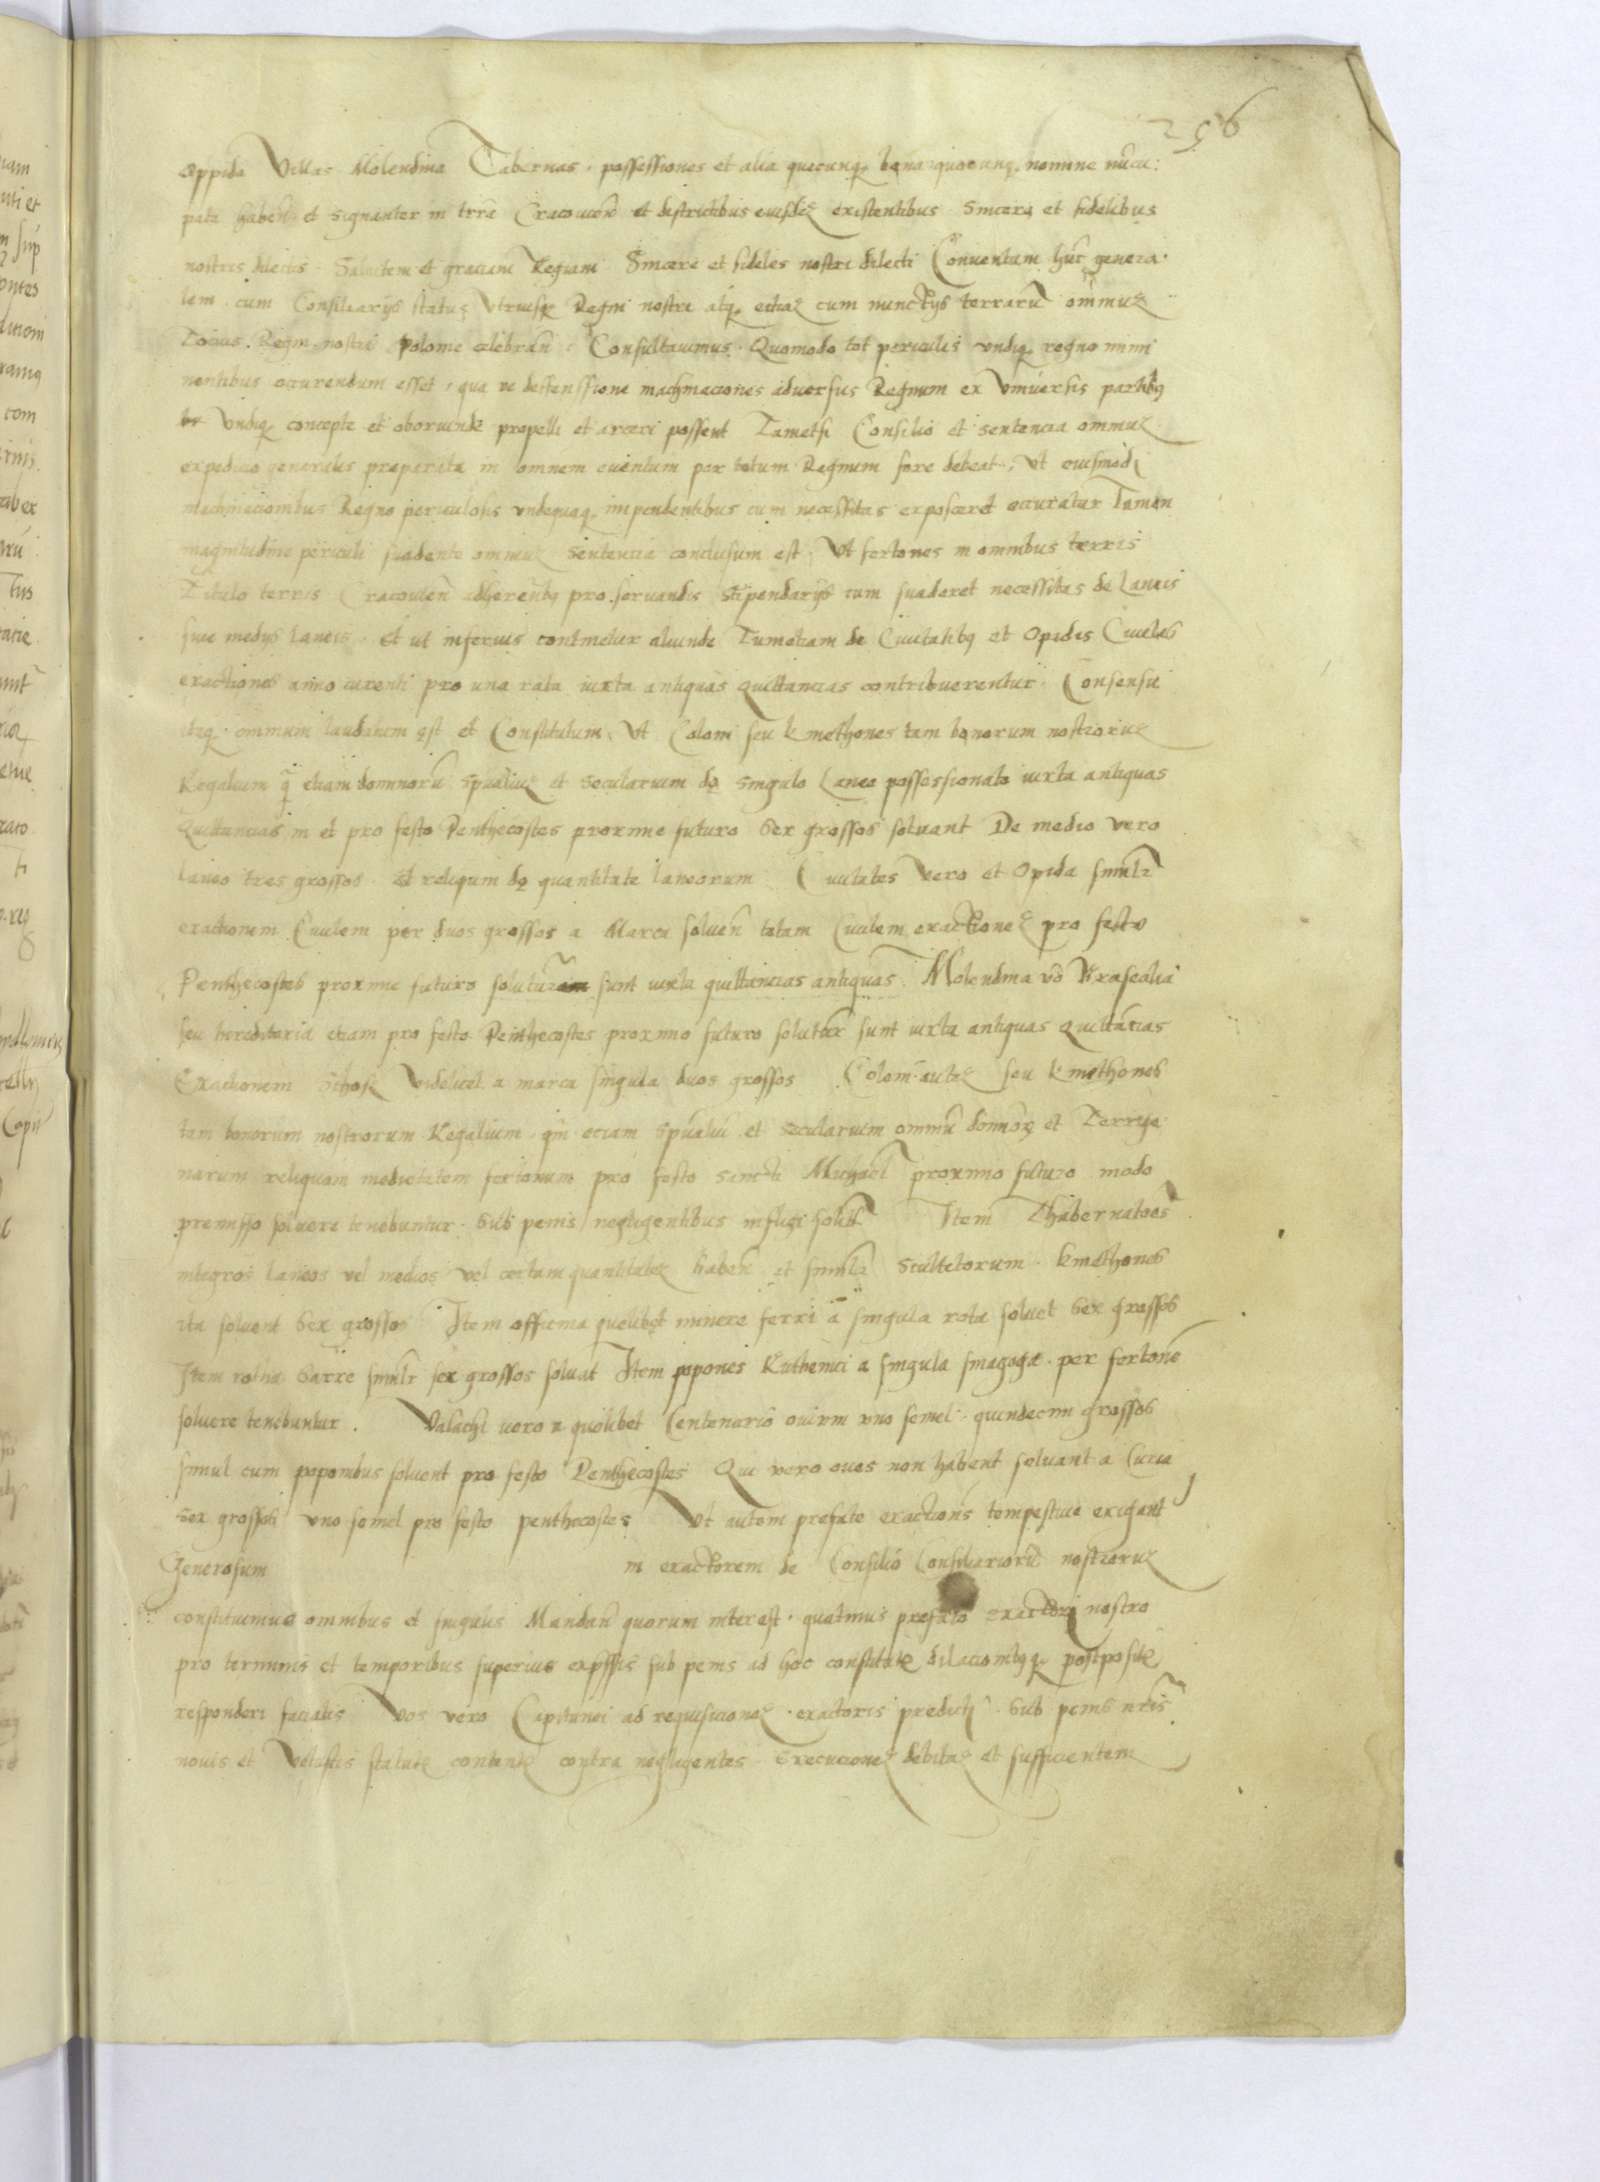 256
oppida Villas Molendina Tabernas possessiones et alia quecunq₃ bona quocunq₃ nomine nuncu:
pata haben̄ et signanter in trra Cracovien̄ et districtibus eiusdeʒ existentibus Sincere et fidelibus
nostris dilectis Salutem et graciam Regiam Sincere et fideles nostri dilecti Conventum hūc genera
lem cum Consiliarijs status Vtriusq₃ Regni nostri atq₃ etiaʒ cum nunctijs terrarū omniuʒ
Tocius Regni nostri Polonie celebran̄ Consultavimus Quomodo tot periculis vndiq₃ regno immi
nentibus occurendum esset qua ve deffenssione machinaciones adversus Regnum ex Vniversis partibꝰ
Vndiq₃ concepte et oboriunde propelli et arceri possent Tametsi Consilio et sentencia omniuʒ
expedicio generalis preparata in omnem eventum per totum Regnum fore debeat Vt eiusmodi
machinacionibus Regno periculosis vndequaq₃ impendentibus cum necessitas exposceret occuratur Tamen
magnitudine periculi suadente omniuʒ sentencia conclusum est Vt fertones in omnibus terris
Titulo terris Cracovien̄ adherentibꝰ pro servandis stipendarijs cum suaderet necessitas de Laneis
sive medijs laneis Et ut inferius continetur aliunde Tum etiam de Civitatibꝰ et Opidis Civiles
exactiones anno curenti pro una rata iuxta antiquas quittancias contribuerentur Consensu
itaq₃ omnium laudatum est et Constitutum Vt Coloni seu kmethones tam bonorum nostroruʒ
Regalium q̄ etiam dominorū spūaliuʒ et secularium de singulo Laneo possessionato iuxta antiquas
Quittancias in et pro festo Penthecostes proxime futuro Sex grossos solvant De medio vero
laneo tres grossos Et reliqum de quantitate laneorum Civitates Vero et Opida simlr̄
exactionem Civilem per duos grossos a Marca solven̄ totam Civilem exactioneʒ pro festo
Penthecostes proxime futuro soluturam sunt iuxta quittancias antiquas Molendina v̄o
seu hereditaria etiam pro festo Penthecostes proximo futuro sunt iuxta antiquas Quittācias
Exactionem Videlicet a marca singula duos grossos Coloni auteʒ seu kmethones
tam bonorum nostrorum Regalium qm̄ etiam spūaliū et secularium omniū domnoꝝ et Terrige
narum reliquam medietatem fertonum pro festo sancti Michael proximo futuro modo
premisso solvere tenebuntur Sub penis negligentibus infligi solitis Item Thabernatores
integros laneos vel medios vel certam quantitateʒ haben̄ et simlr̄ Scultetorum kmethones
ita solvent Sex grossos Item officina quelibet minere ferri a singula rota solvet Sex grossos
Item rotha Sarre simlr̄ sex grossos solvat Item popones Rutheni a singula sinagoga per fertonē
solvere tenebuntur Valachi vero a quolibet Centenario ovium vno semel quindecim grossos
simul cum poponibus solvent pro festo Penthecostes Qui vero oves non habent solvant a Curia
sex grossos vno semel pro festo penthecostes Vt autem prefate exactiones tempestive exigant
Generosum in exactorem de Consilio Consiliariorū nostroruʒ
constituimus omnibus et singulis Mandan̄ quorum interest quatinus prefato exactori nostro
pro terminis et temporibus superius exp̄ssis sub penis ad hoc constitutis dilacionibꝰq₃ postpositis
responderi faciatis Vos vero Capitanei ad requisicioneʒ exactoris predicti sub penis nr̄is
novis et Vetustis statutis contentis contra negligentes Execucioneʒ debitaʒ et sufficientem